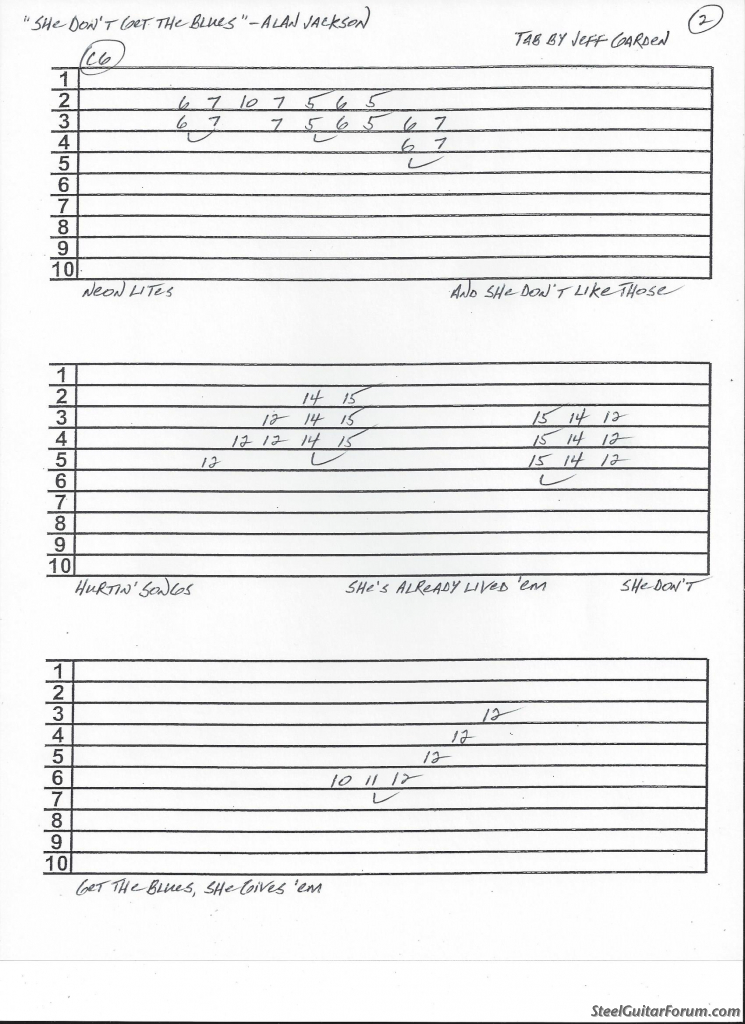 "SHE DON'T GET THE BLUES" - ALAN JACKSON
2
TAB BY JEFF GARDEN
C6
1
2 6 7 10 7 5 6 5
3 6 7 7 5 6 5 6 7
4 6 7
5
6
7
8
9
10
NEON LITES AND SHE DON'T LIKE THOSE
1
2 14 15
3 12 14 15 15 14 12
4 12 12 14 15 15 14 12
5 12 15 14 12
6
7
8
9
10
HURTIN' SONGS SHE'S ALREADY LIVED 'EM SHE DON'T
1
2
3 12
4 12
5 12
6 10 11 12
7
8
9
10
GET THE BLUES, SHE GIVES 'EM
SteelGuitarForum.com